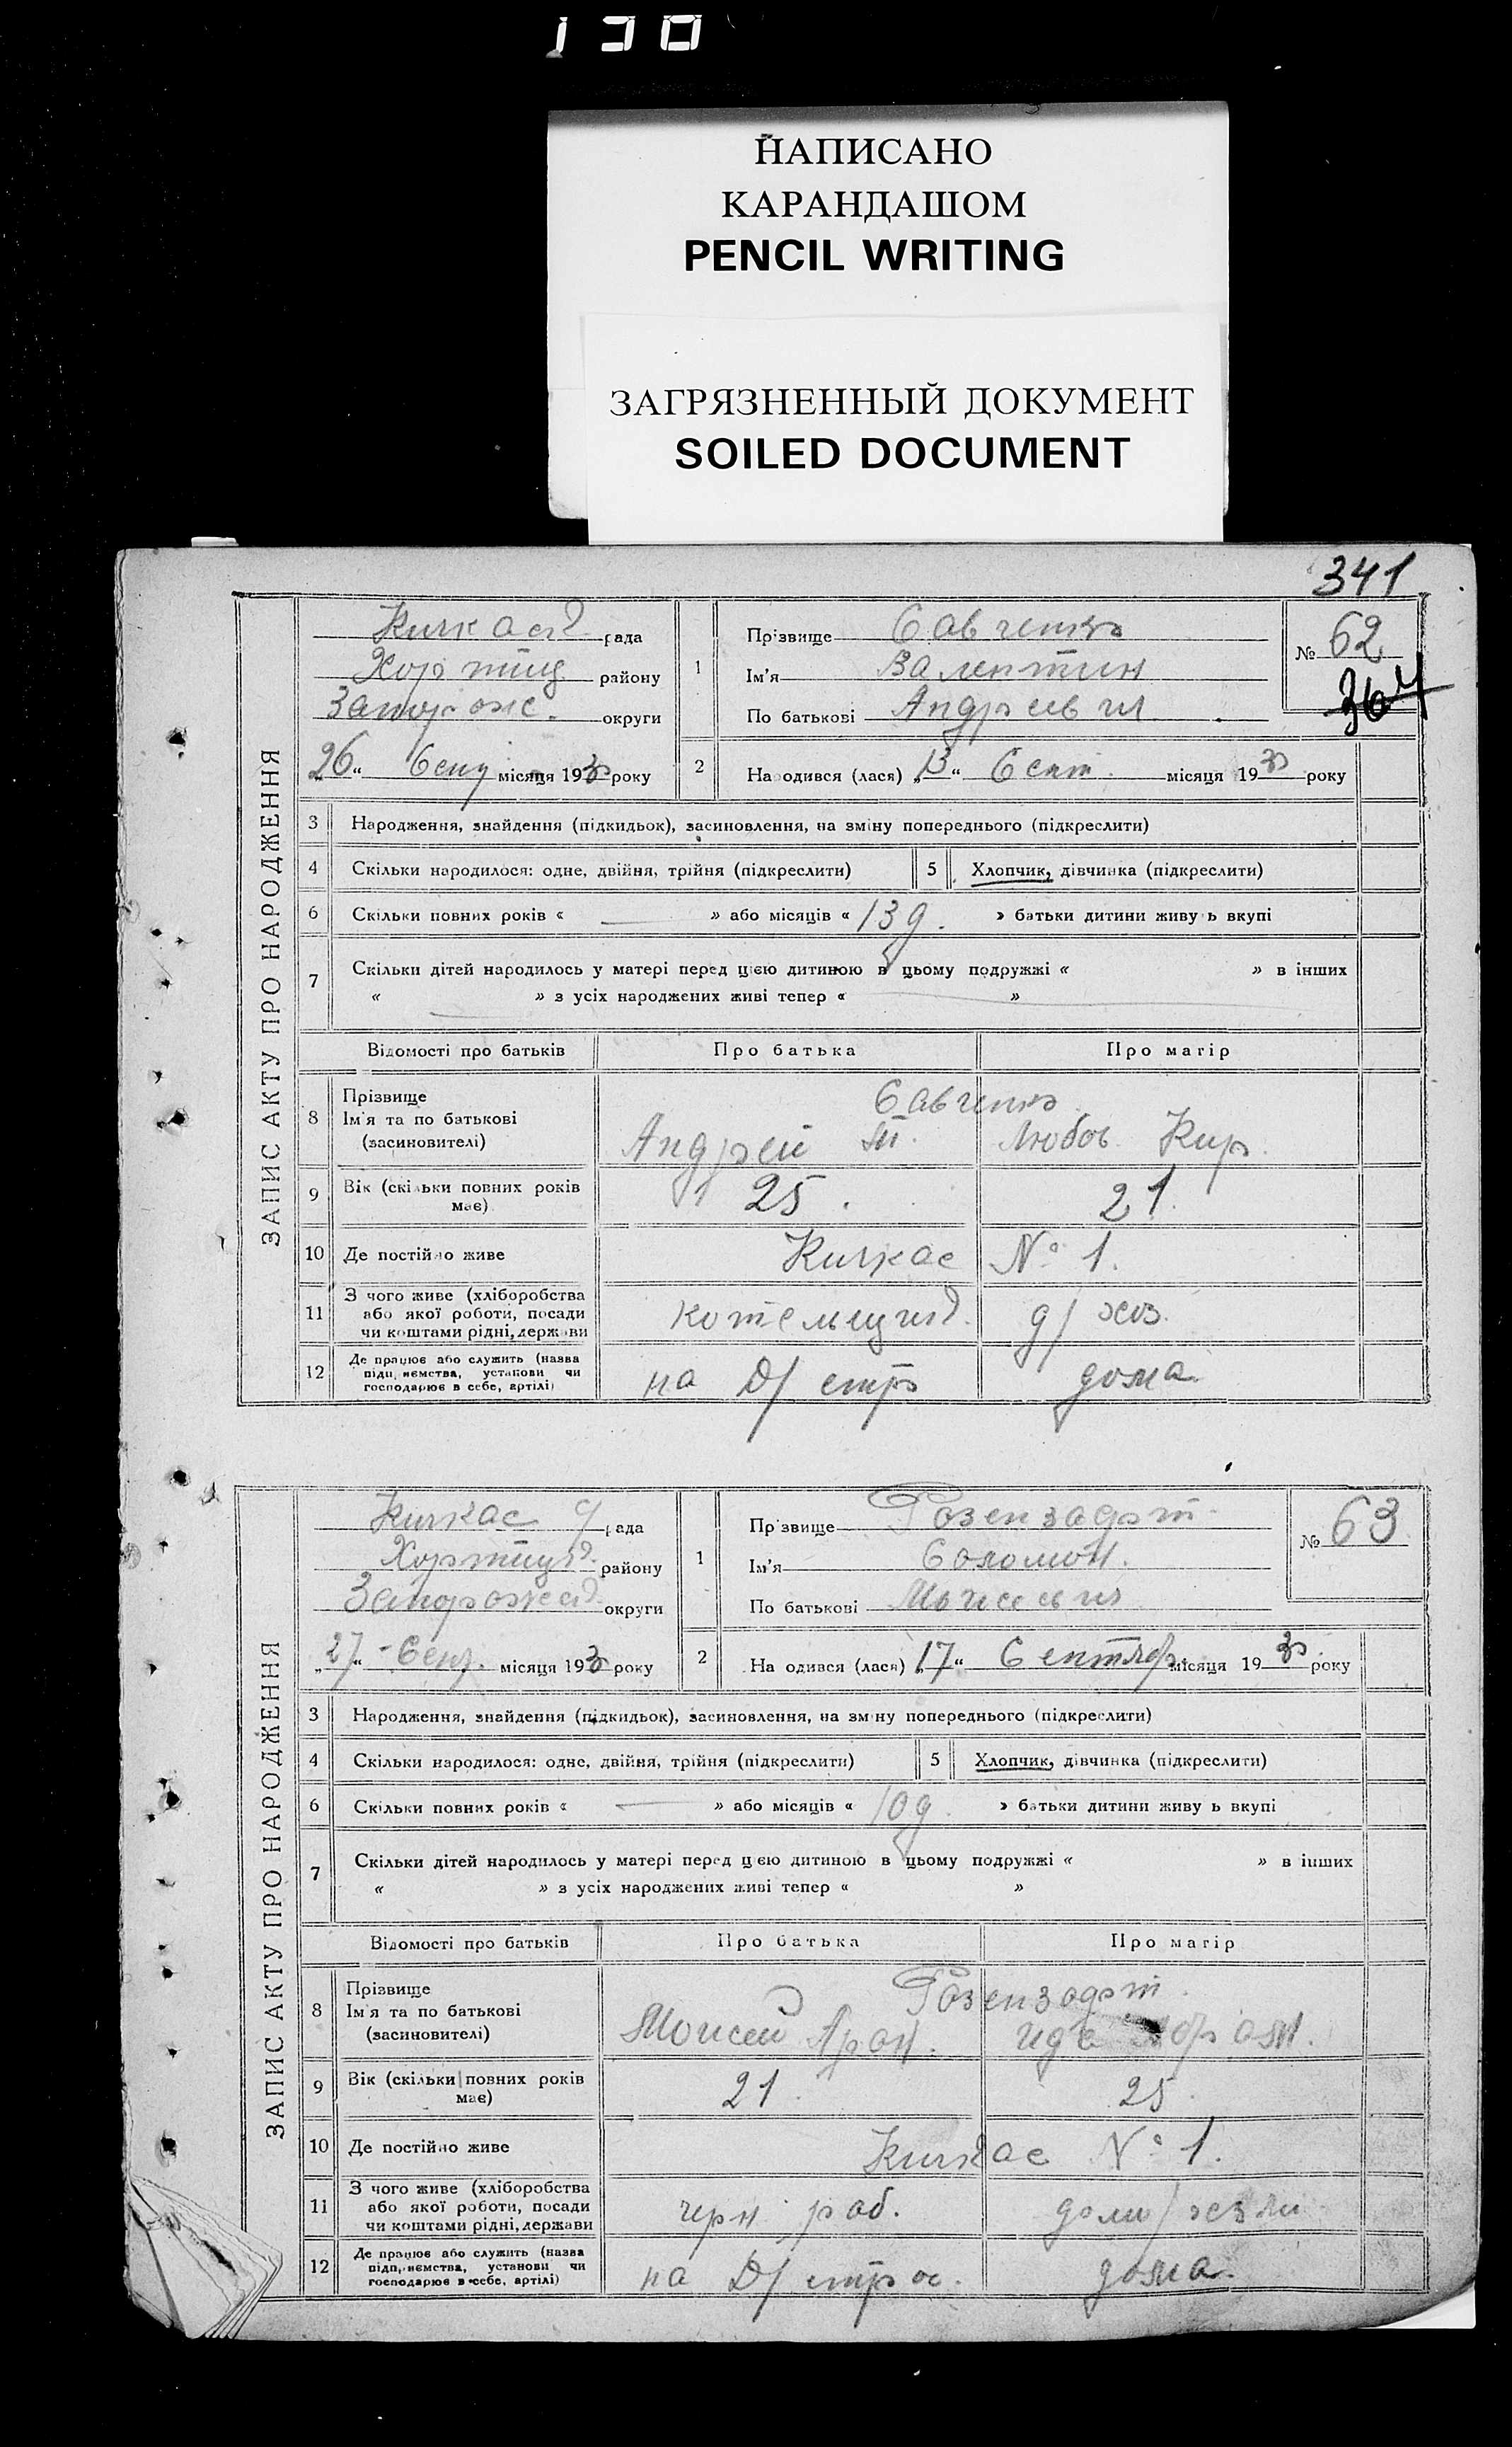 НАПИСАНО
КАРАНДАШОМ
PENCIL WRITING
ЗАГРЯЗНЕННЫЙ ДОКУМЕНТ
SOILED DOCUMENT
341
ЗАПИС АКТУ ПРО НАРОДЖЕННЯ
рада
Хортиц району
Запорож. округи
26 " Сент місяця 1930 року
1 Прізвище Савченко
Ім'я Валентин
По батькові Андреевич
№ 62
364
2 Народився (лася) „13" Сент. місяця 1930 року
3 Народження, знайдення (підкидьок), засиновлення, на зміну попереднього (підкреслити)
4 Скільки народилося: одне, двійня, трійня (підкреслити) 5 Хлопчик, дівчинка (підкреслити)
6 Скільки повних років « — » або місяців « 13 д. » батьки дитини живуть вкупі
7 Скільки дітей народилось у матері перед цією дитиною в цьому подружжі « » в інших
« » з усіх народжених живі тепер « »
Відомості про батьків Про батька Про матір
8 Прізвище
Ім'я та по батькові
(засиновителі)
Савченко
Андрей Любов Кир.
9 Вік (скільки повних років
має)
25. 21.
10 Де постійно живе Кичкас № 1.
11 З чого живе (хліборобства
або якої роботи, посади
чи коштами рідні, держави
д/хоз.
12 Де працює або служить (назва
підприємства, установи чи
господарює в себе, артілі)
на Д/стр дома
ЗАПИС АКТУ ПРО НАРОДЖЕННЯ
Кичкас рада
району
округи
„27" Сент. місяця 1930 року
1 Прізвище
Ім'я Соломон.
По батькові Моисеевич
№ 63
2 Народився (лася) „17" Сентябр. місяця 1930 року
3 Народження, знайдення (підкидьок), засиновлення, на зміну попереднього (підкреслити)
4 Скільки народилося: одне, двійня, трійня (підкреслити) 5 Хлопчик, дівчинка (підкреслити)
6 Скільки повних років « — » або місяців « 10 д. » батьки дитини живуть вкупі
7 Скільки дітей народилось у матері перед цією дитиною в цьому подружжі « » в інших
« » з усіх народжених живі тепер « »
Відомості про батьків Про батька Про матір
8 Прізвище
Ім'я та по батькові
(засиновителі)
Моисей Арон. Ида
9 Вік (скільки повних років
має)
21. 25.
10 Де постійно живе Кичкас № 1.
11 З чого живе (хліборобства
або якої роботи, посади
чи коштами рідні, держави
черн. раб.
12 Де працює або служить (назва
підприємства, установи чи
господарює в себе, артілі)
на Д/строс. дома.